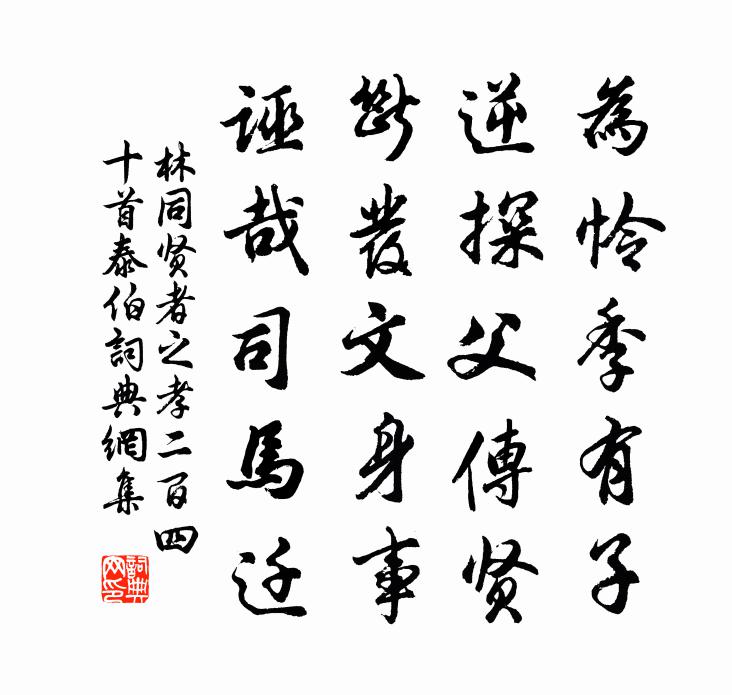 為怜季有子
逆探父傳贤
断發文身事
誣哉司馬迁
林同贤者之孝二百四
十首泰伯詞典網集
詞典
网印